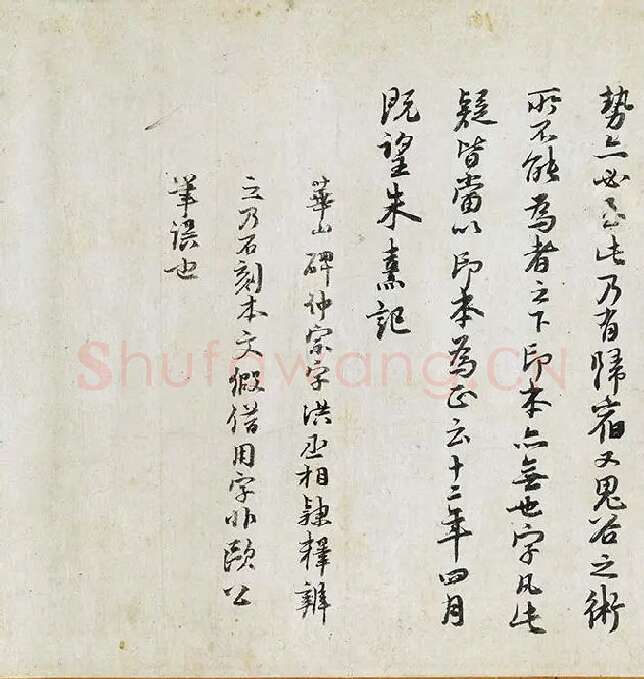 勢亦必如此乃有歸宿又鬼谷之術
所不能為者之下印本亦無也字凡此
疑皆當以印本為正云十二年四月
既望朱熹記
華山碑仲宗字洪丞相隸釋辨
之乃石刻本文假借用字非歐公
筆誤也
Shufawang.CN